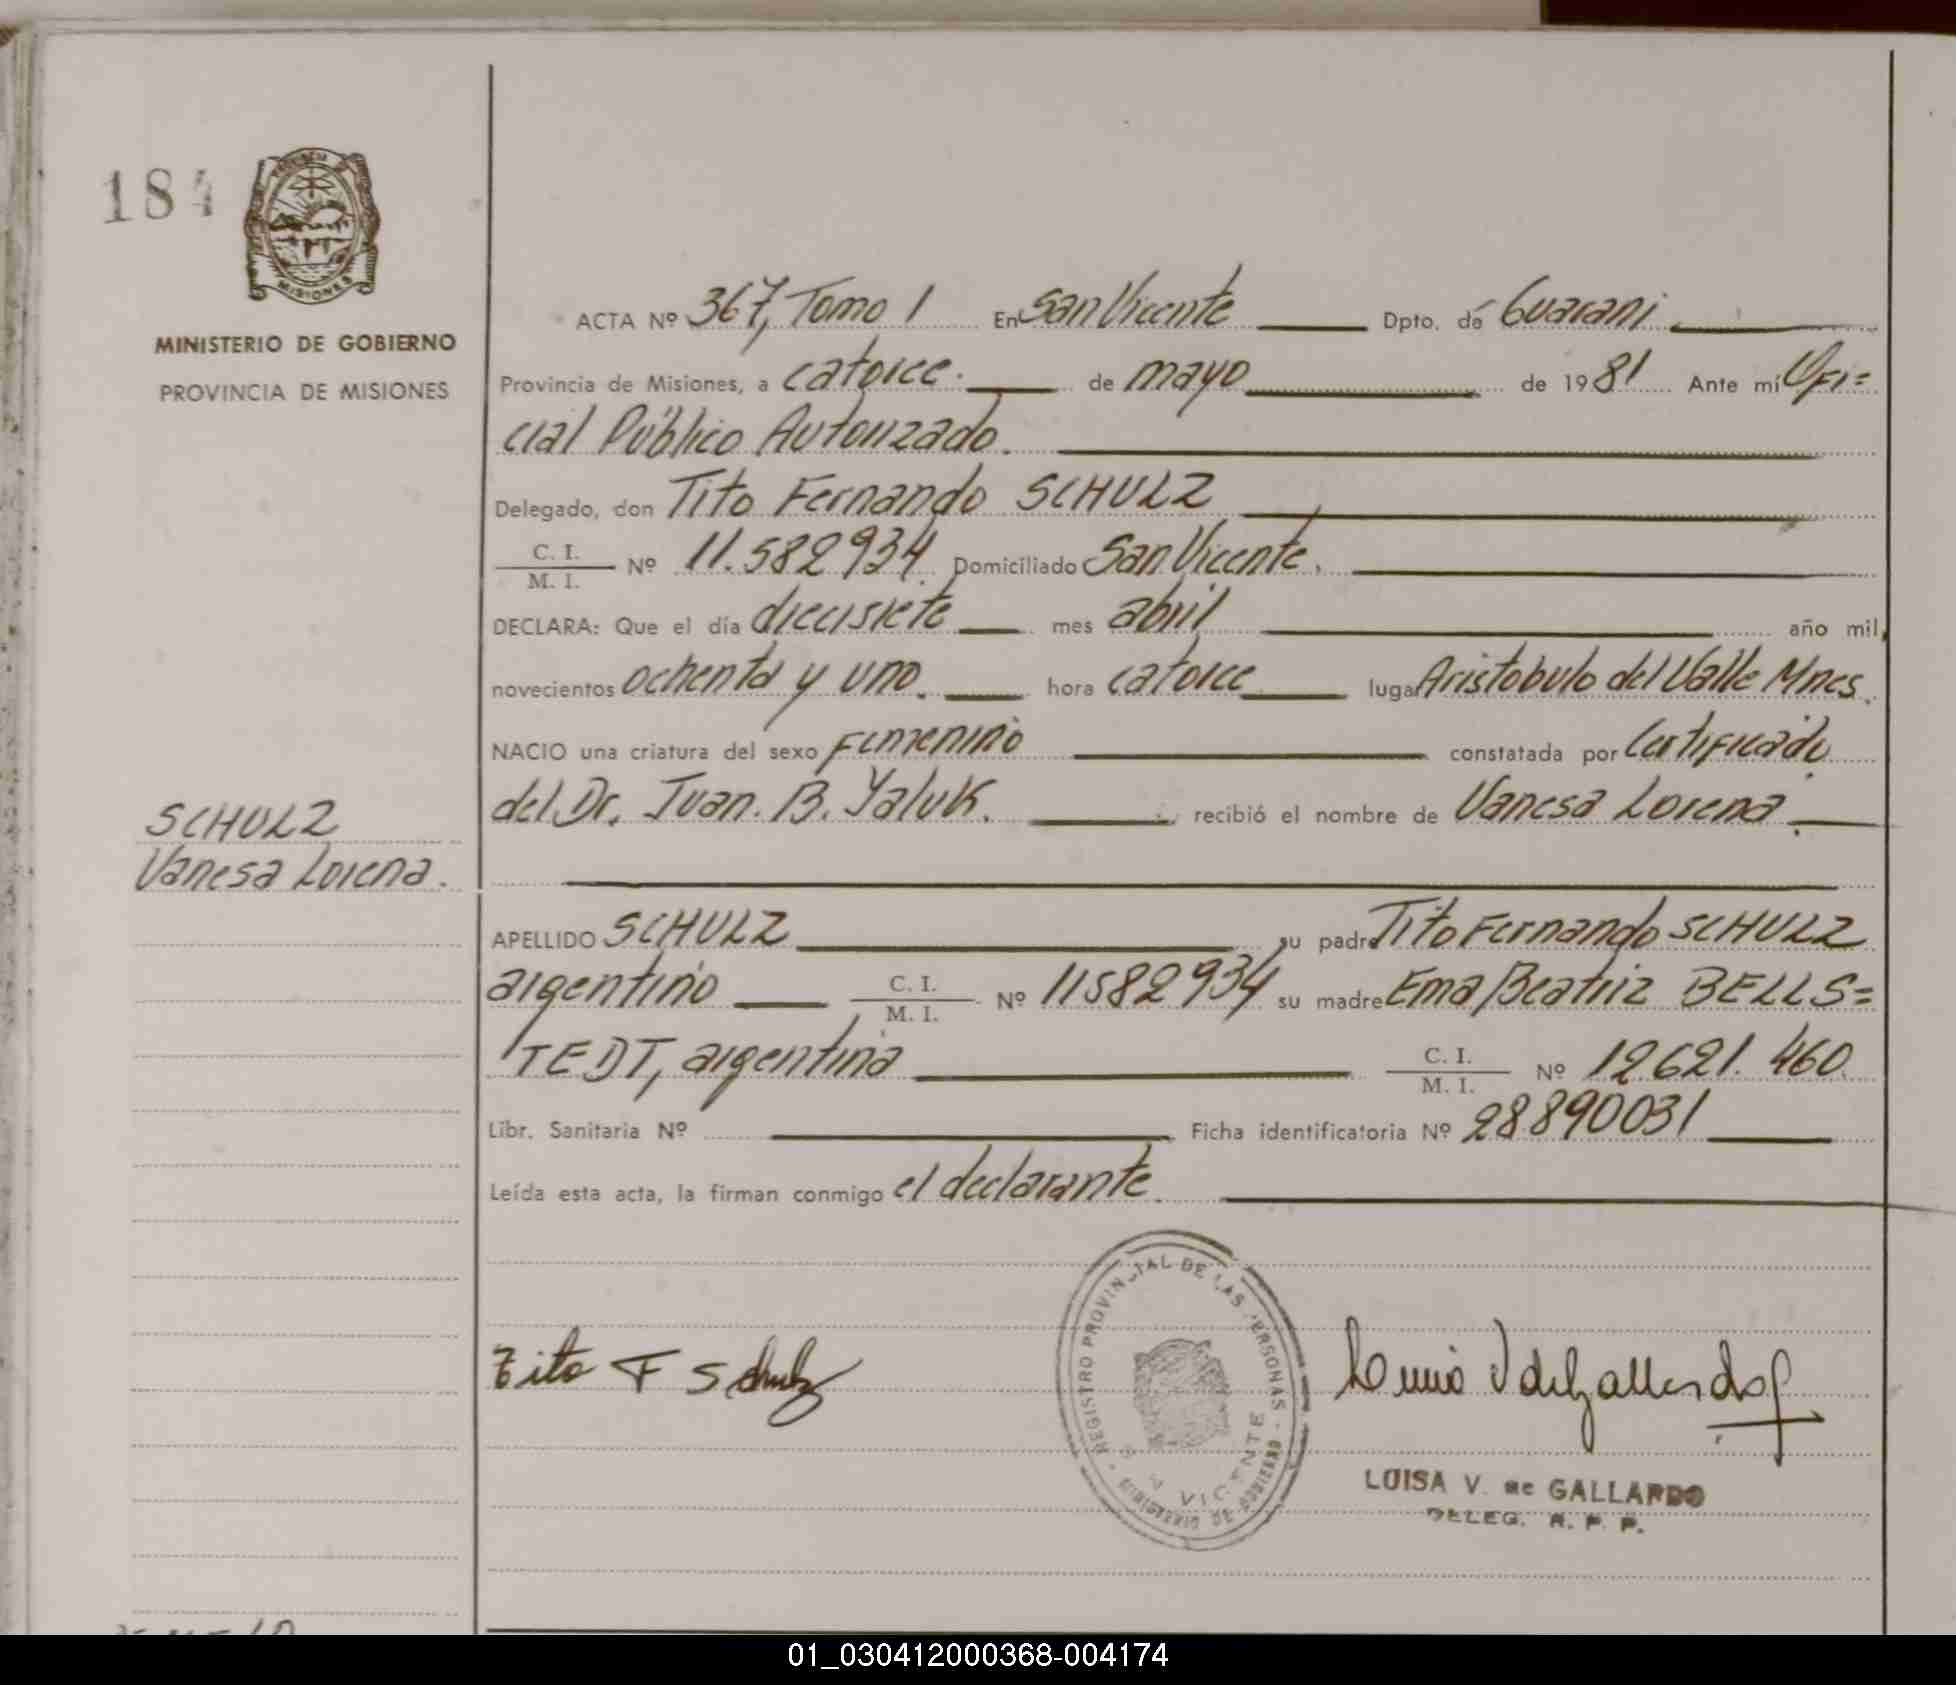 184
PROVINCIA DE
MISIONES
MINISTERIO DE GOBIERNO
PROVINCIA DE MISIONES
ACTA Nº 367, Tomo 1 En San Vicente Dpto. de Guarani
Provincia de Misiones, a catorce. de mayo de 1981 Ante mí Ofi=
cial Público Autorizado.
Delegado, don Tito Fernando SCHULZ
C. I.
M. I. Nº 11.582934. Domiciliado San Vicente.
DECLARA: Que el día diecisiete mes abril año mil
novecientos ochenta y uno. hora catorce lugar Aristobulo del Valle Mnes.
NACIO una criatura del sexo Femenino constatada por Certificado
del Dr. Juan. B. Yaluk. recibió el nombre de Vanesa Lorena.
SCHULZ
Vanesa Lorena.
APELLIDO SCHULZ su padre Tito Fernando SCHULZ
argentino C. I.
M. I. Nº 11582934 su madre Ema Beatriz BELLS=
TEDT, argentina C. I.
M. I. Nº 12621.460
Libr. Sanitaria Nº Ficha identificatoria Nº 28890031
Leída esta acta, la firman conmigo el declarante.
REGISTRO PROVINCIAL DE LAS PERSONAS - MINISTERIO DE GOBIERNO
VICENTE
Tito F Schulz
LUISA V. de GALLARDO
DELEG. R. P. P.
01_030412000368-004174